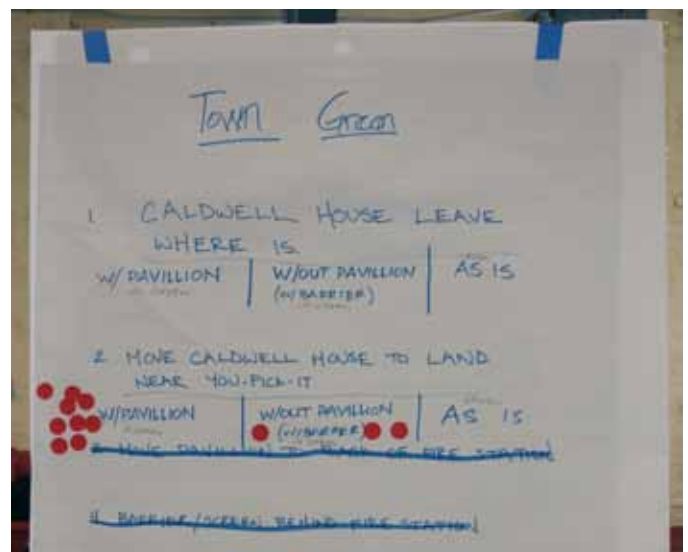 Town Green
1 CALDWELL HOUSE LEAVE
WHERE IS
W/ PAVILLION W/OUT PAVILLION AS IS
(W/BARRIER)
2 MOVE CALDWELL HOUSE TO LAND
NEAR YOU-PICK-IT
W/PAVILLION W/OUT PAVILLION AS IS
(W/BARRIER)
3 MOVE PAVILLION TO BACK OF FIRE STATION
4 BARRIER/SCREEN BEHIND FIRE STATION